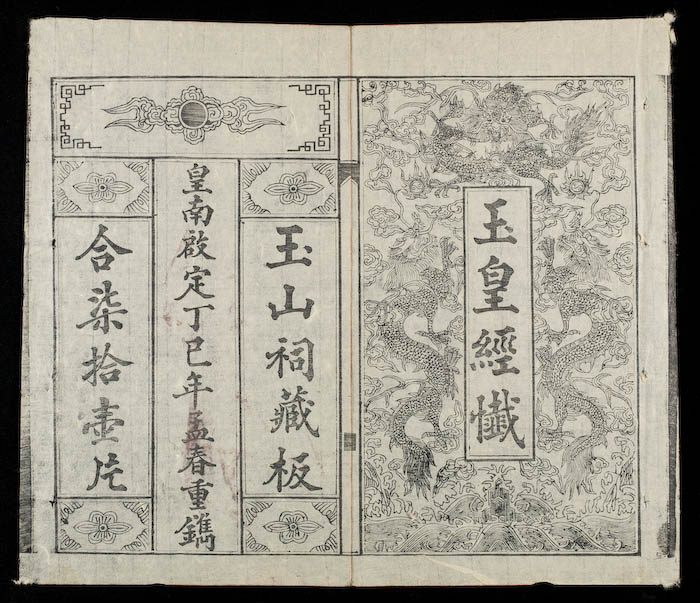 玉皇經懺
玉山祠藏板
皇南啟定丁巳年孟春重鐫
合柒拾壹片